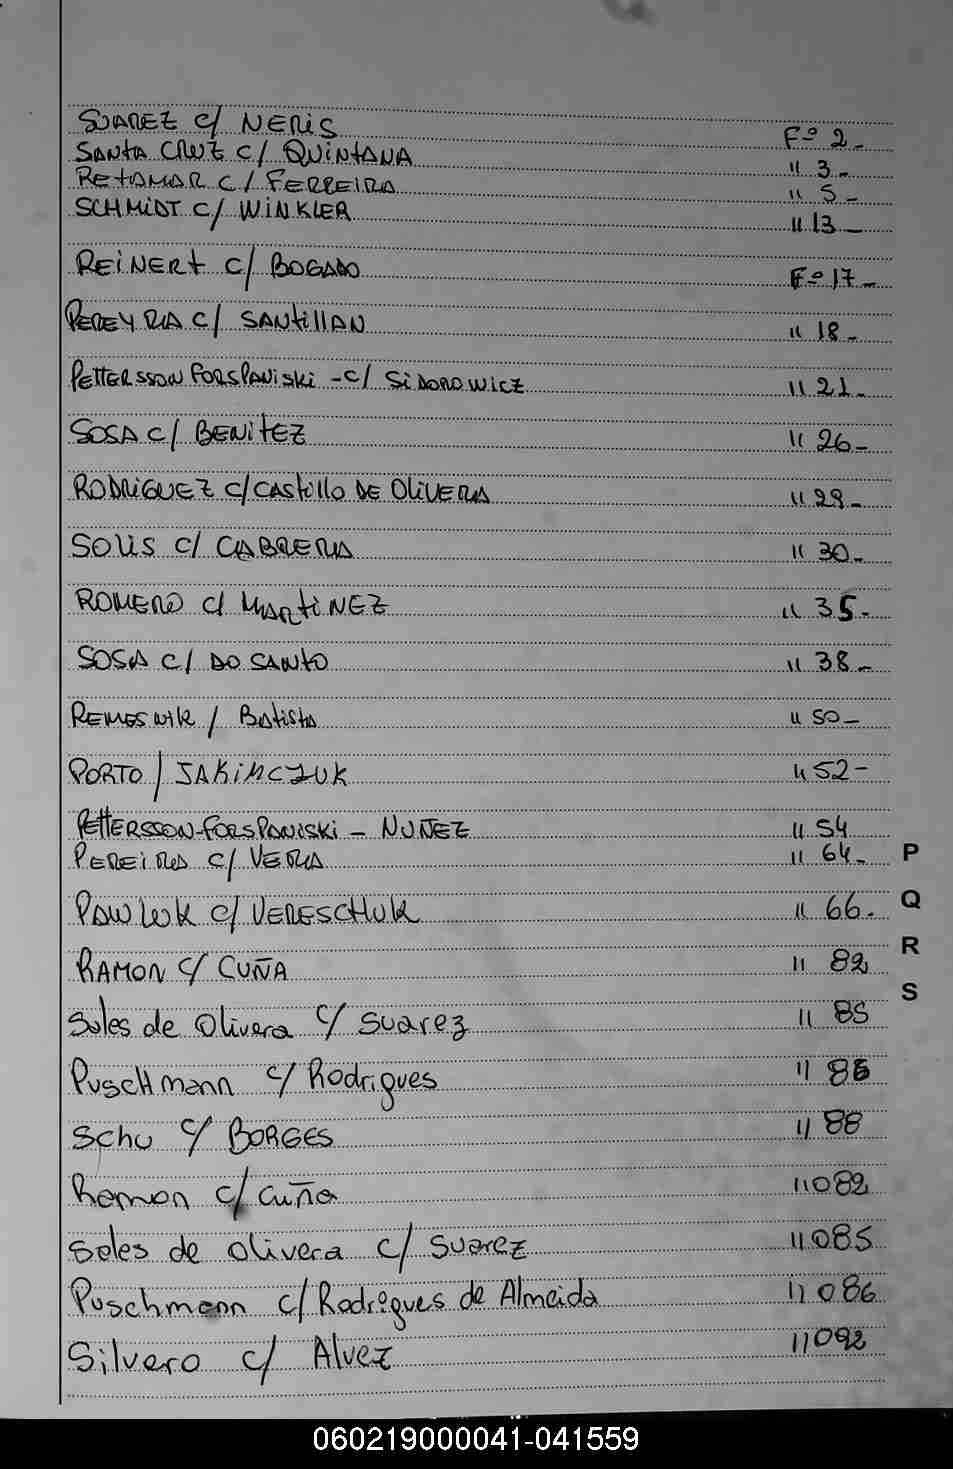 SUAREZ c/ NERIS Fº 2-
SANTA CRUZ c/ QUINTANA " 3-
RETAMAR c/ FERREIRA " 5-
SCHMIDT c/ WINKLER " 13-
REINERT c/ BOGADO Fº 17-
PEREYRA c/ SANTILLAN " 18-
PETTERSSON FORSPANISKI - c/ SIDOROWICZ " 21-
SOSA c/ BENITEZ " 26-
RODRIGUEZ c/ CASTILLO DE OLIVERA " 29-
SOLIS c/ CABRERA " 30-
ROMERO c/ MARTINEZ " 35-
SOSA c/ DO SANTO " 38-
REMESNIK / Batista " 50-
PORTO / JAKIMCZUK " 52-
PETTERSSON-FORSPANISKI - NUÑEZ " 54
PEREIRA c/ VERA " 64-
P
PAWLUK c/ VERESCHUK " 66.
Q
RAMON c/ CUÑA " 82
R
Soles de Olivera c/ Suarez " 85
S
PuscHmann c/ Rodrigues " 86
Schu c/ BORGES " 88
Ramon c/ Cuña " 082
Soles de Olivera c/ Suarez " 085
Puschmann c/ Rodrigues de Almeida " 086
Silvero c/ Alvez " 092
060219000041-041559